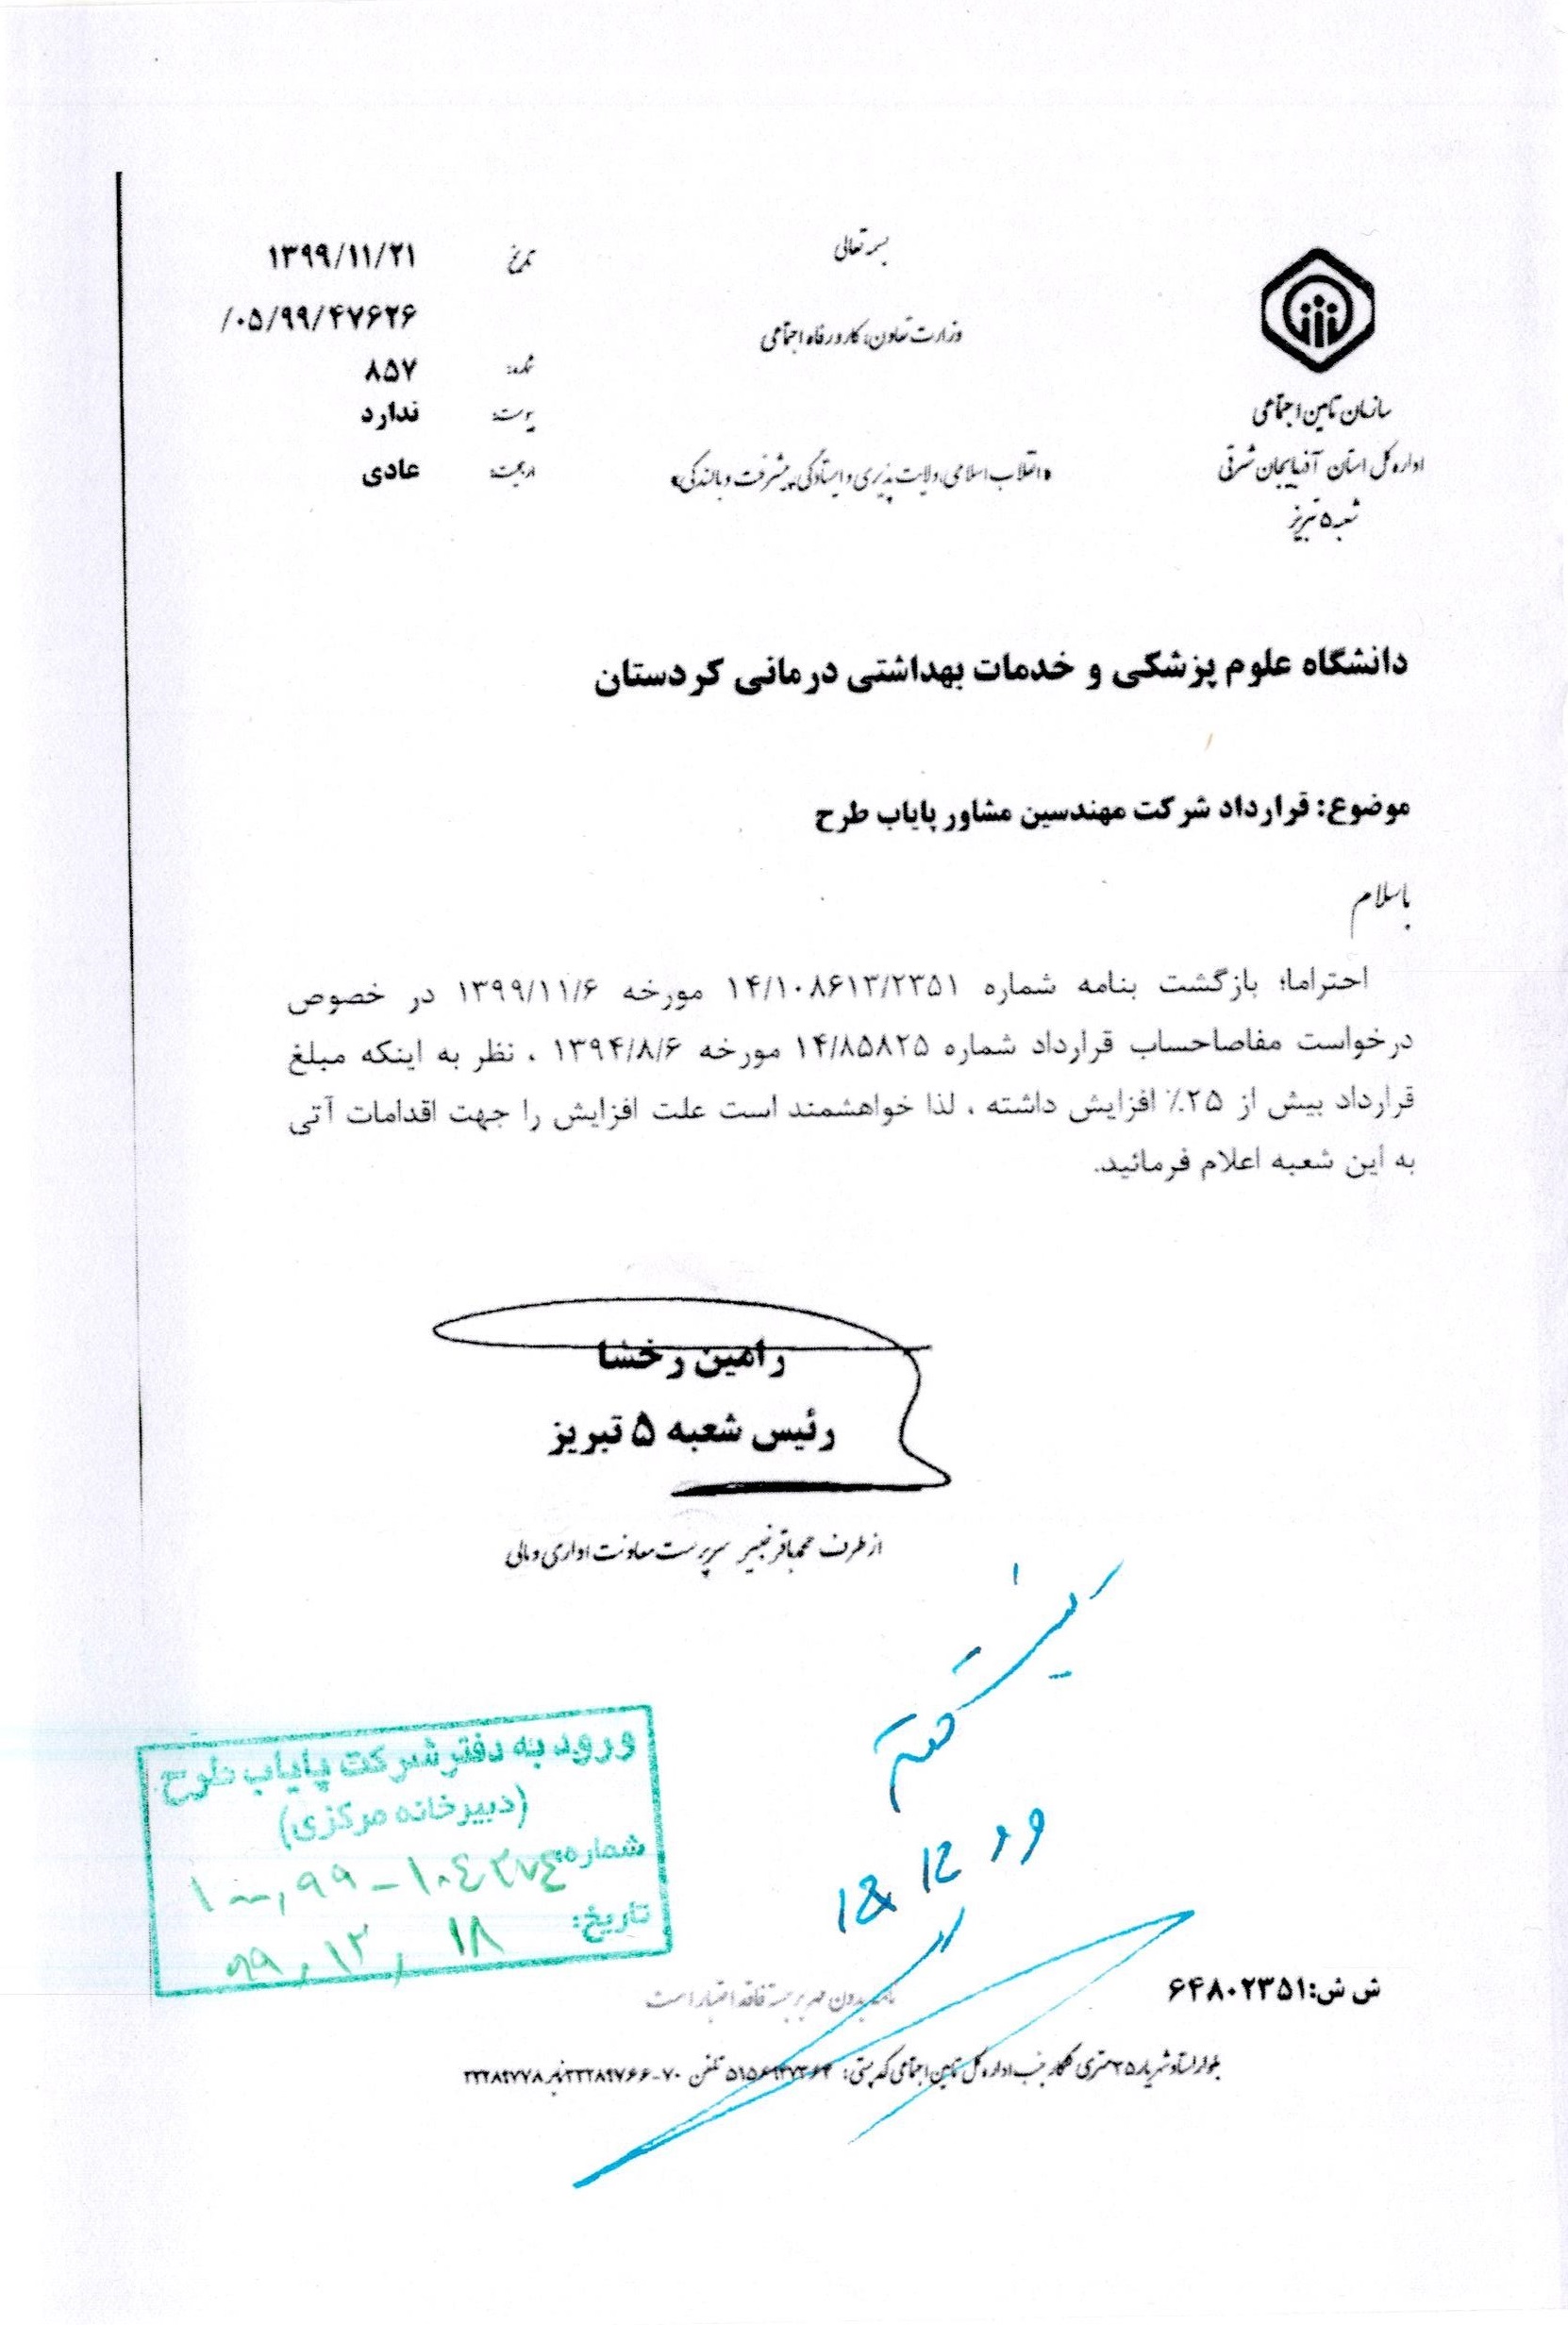 بسمه تعالی
وزارت تعاون، کار و رفاه اجتماعی
«انقلاب اسلامی، ولایت پذیری و ایستادگی، پیشرفت و بالندگی»
سازمان تامین اجتماعی
اداره کل استان آذربایجان شرقی
شعبه ۵ تبریز
تاریخ ۱۳۹۹/۱۱/۲۱
/۰۵/۹۹/۴۷۶۲۶
شماره: ۸۵۷
پیوست: ندارد
ارجحیت: عادی
دانشگاه علوم پزشکی و خدمات بهداشتی درمانی کردستان
موضوع: قرارداد شرکت مهندسین مشاور پایاب طرح
باسلام
احتراما؛ بازگشت بنامه شماره ۱۴/۱۰۸۶۱۳/۲۳۵۱ مورخه ۱۳۹۹/۱۱/۶ در خصوص
درخواست مفاصاحساب قرارداد شماره ۱۴/۸۵۸۲۵ مورخه ۱۳۹۴/۸/۶ ، نظر به اینکه مبلغ
قرارداد بیش از ۲۵٪ افزایش داشته ، لذا خواهشمند است علت افزایش را جهت اقدامات آتی
به این شعبه اعلام فرمائید.
رامین رخشا
رئیس شعبه ۵ تبریز
از طرف محمدباقر سرپرست معاونت اداری و مالی
ورود به دفتر شرکت پایاب طرح
(دبیرخانه مرکزی)
شماره:
تاریخ: ۹۹,۱۲,۱۸
ش ش:۶۴۸۰۲۳۵۱
نامه بدون مهر برجسته فاقد اعتبار است
بلوار استاد شهریار ۳۵ متری گلکار جنب اداره کل تامین اجتماعی کد پستی: تلفن ۷۰-۳۳۲۸۹۷۶۶